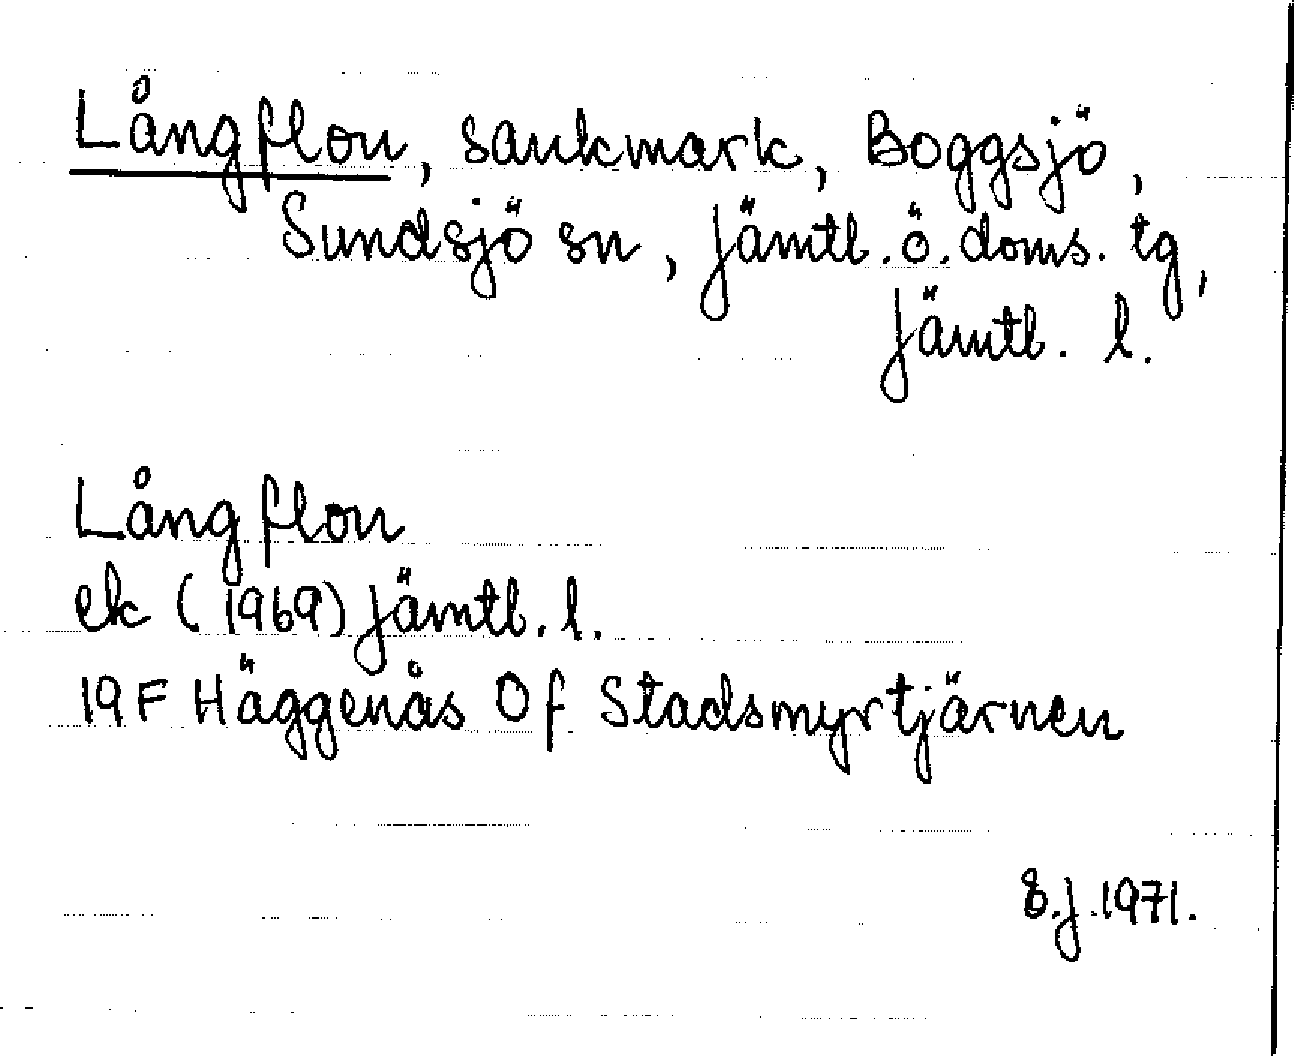 Långflon, sankmark, Boggsjö,
Sundsjö sn, Jämtl. ö. doms. tg,
Jämtl. l.
Långflon
ek (1969) Jämtl. l.
19F Häggenås Of Stadsmyrtjärnen
S.J. 1971.